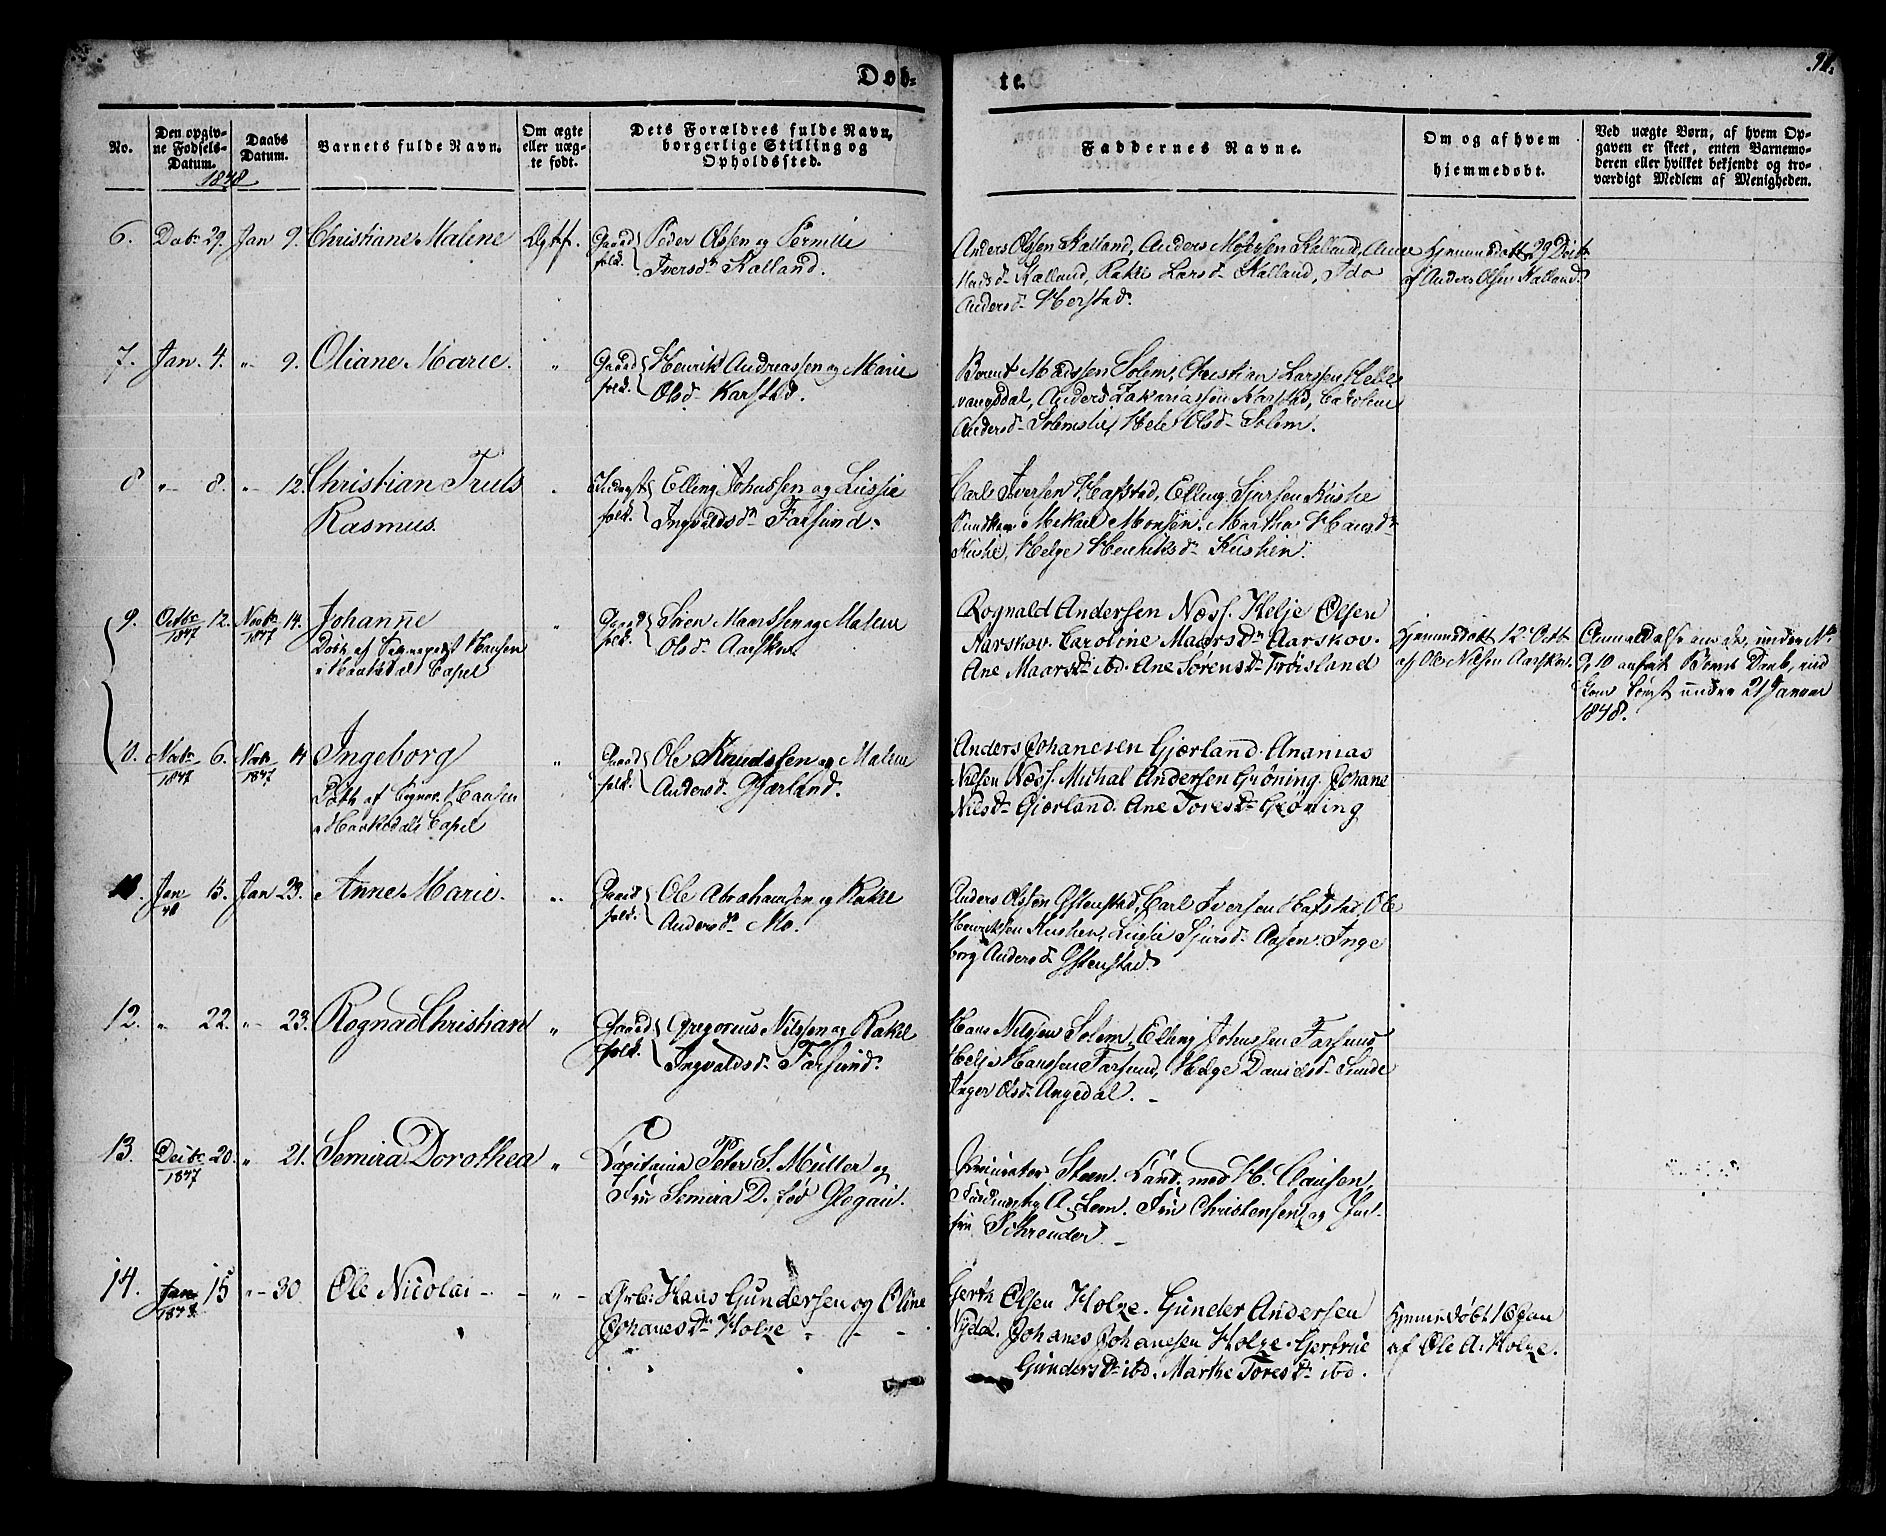 Døb=
te.
91.
No.
Den opgiv-
ne Fødsels-
Datum.
1848
Daabs
Datum.
Barnets fulde Navn.
Om ægte
eller uæg-
te født.
Dets Forældres fulde Navn,
borgerlige Stilling og
Opholdssted.
Faddernes Navne.
Om og af hvem
hjemmedøbt.
Ved uægte Børn, af hvem Op-
gaven er skeet, enten Barnemo-
deren eller hvilket bekjendt og tro-
værdigt Medlem af Menigheden.
6. Debr 29. Jan 9. Christiane Malene Ægtf. Gaard
folk. Peder Olssen og Pernille
Iversdr Kalland.
Anders Olssen Kalland, Anders Kalland, Anne
Kalland, Rakel Larsdr Kalland, Ida
Andersdr Herstad.
Hjemmedøbt 29 Decbr
af Anders Olsen Kalland.
7. Jan. 4. " 9. Oliane Marie. " Gaard
folk. Henrik Andreassen og Marie
Olsdr Karstad.
Berent Madssen Solem, Christian Larssen Helle
vangsdal, Anders Zakariassen Karstad,
Andersdr Solemslie, Hele Olsdr Solem.
8 " 8. " 12. Christian Truls
Rasmus. " folk. Elling Johnssen og Lussie
Ingvaldsdr Farsund.
Carl Iversen Hafstad, Elling Sjursen
Mekael Monsen. Martha Hansdr
Helge Henriksdr
9. Octbr 12. Novbr 14. Johanne
1847 1847
Døbt af Sogneprest Hansen
i Capel
" Gaard
folk. Sören og Malene
Olsdr Aarskov.
Rognald Andersen Næss. Helje Olsen
Aarskov. Caroline Maarsdr Aarskov.
Ane Maarsdr ibd. Ane Sörensdr Tröisland
Hjemmedøbt 12 Oct
af Ole Nilsen Aarskov.
Anmeldelse om de, under No
9, 10 anførte Børns Daab, ind
kom først under 21 Januar
1848.
10. Novbr 6. Novbr 14 Ingeborg
1847 1847
Døbt af Sognepr. Hansen
i Capel
" Gaard
folk. Ole Knudssen og Malene
Andersdr Gjærland.
Anders Johanesen Gjærland. Ananias
Nielsen Næss. Michal Andersen Grøning. Johane
Nilsdr Gjærland. Ane Toresdr Grøning
11. Jan 15. Jan 23. Anne Marie. " Gaard
48
folk. Ole Abrahamsen og Rakel
Andersdr Mo.
Anders Olssen Carl Iversen Hafstad, Ole
Henriksen Lussie Sjursdr Aasen. Inge
borg Andersdr
12. " 22. " 23. Rognad Christian " Gaard
folk. Gregorius Nilssen og Rakel
Ingvaldsdr Farsund.
Hans Nilssen Solem, Elling Johnssen Farsund
Helje Hanssen Farsund, Helge Danielsdr Sunde
Inger Olsdr Angedal.
13. Decbr 20. " 21. Semira Dorothea " Capitaine Peter S. Müller og
1847
Fru Semira D. fød Glogau.
Procurator Steen. Cand. med H. Clausen,
A. Lem. Fru Christensen og Jom-
fru Schreuder.
14. Jan 15 " 30 Ole Nicolai - " - Grb: Hans Gundersen og Oline
1848.
Johanesdr Holze
Gjerth Olsen Holze. Gunder Andersen
Nydal. Johanes Johanesen Holze. Gjertrue
Gundersdr ibd. Marthe Toresdr ibd.
Hjemmedøbt 16 Jan
af Ole A. Holze.